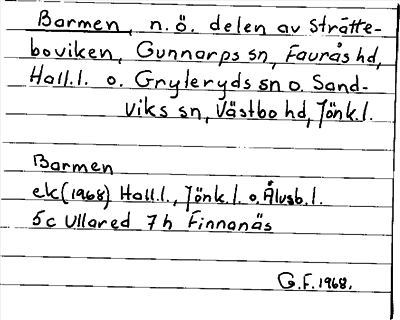 Barmen, n.ö. delen av Strätte-
boviken, Gunnarps sn, Faurås hd,
Hall.l. o. Gryteryds sn o. Sand-
viks sn, Västbo hd, Jönk.l.
Barmen
ek (1968) Hall.l., Jönk.l. o. Älvsb.l.
5c Ullared 7h Finnanäs
G.F. 1968.